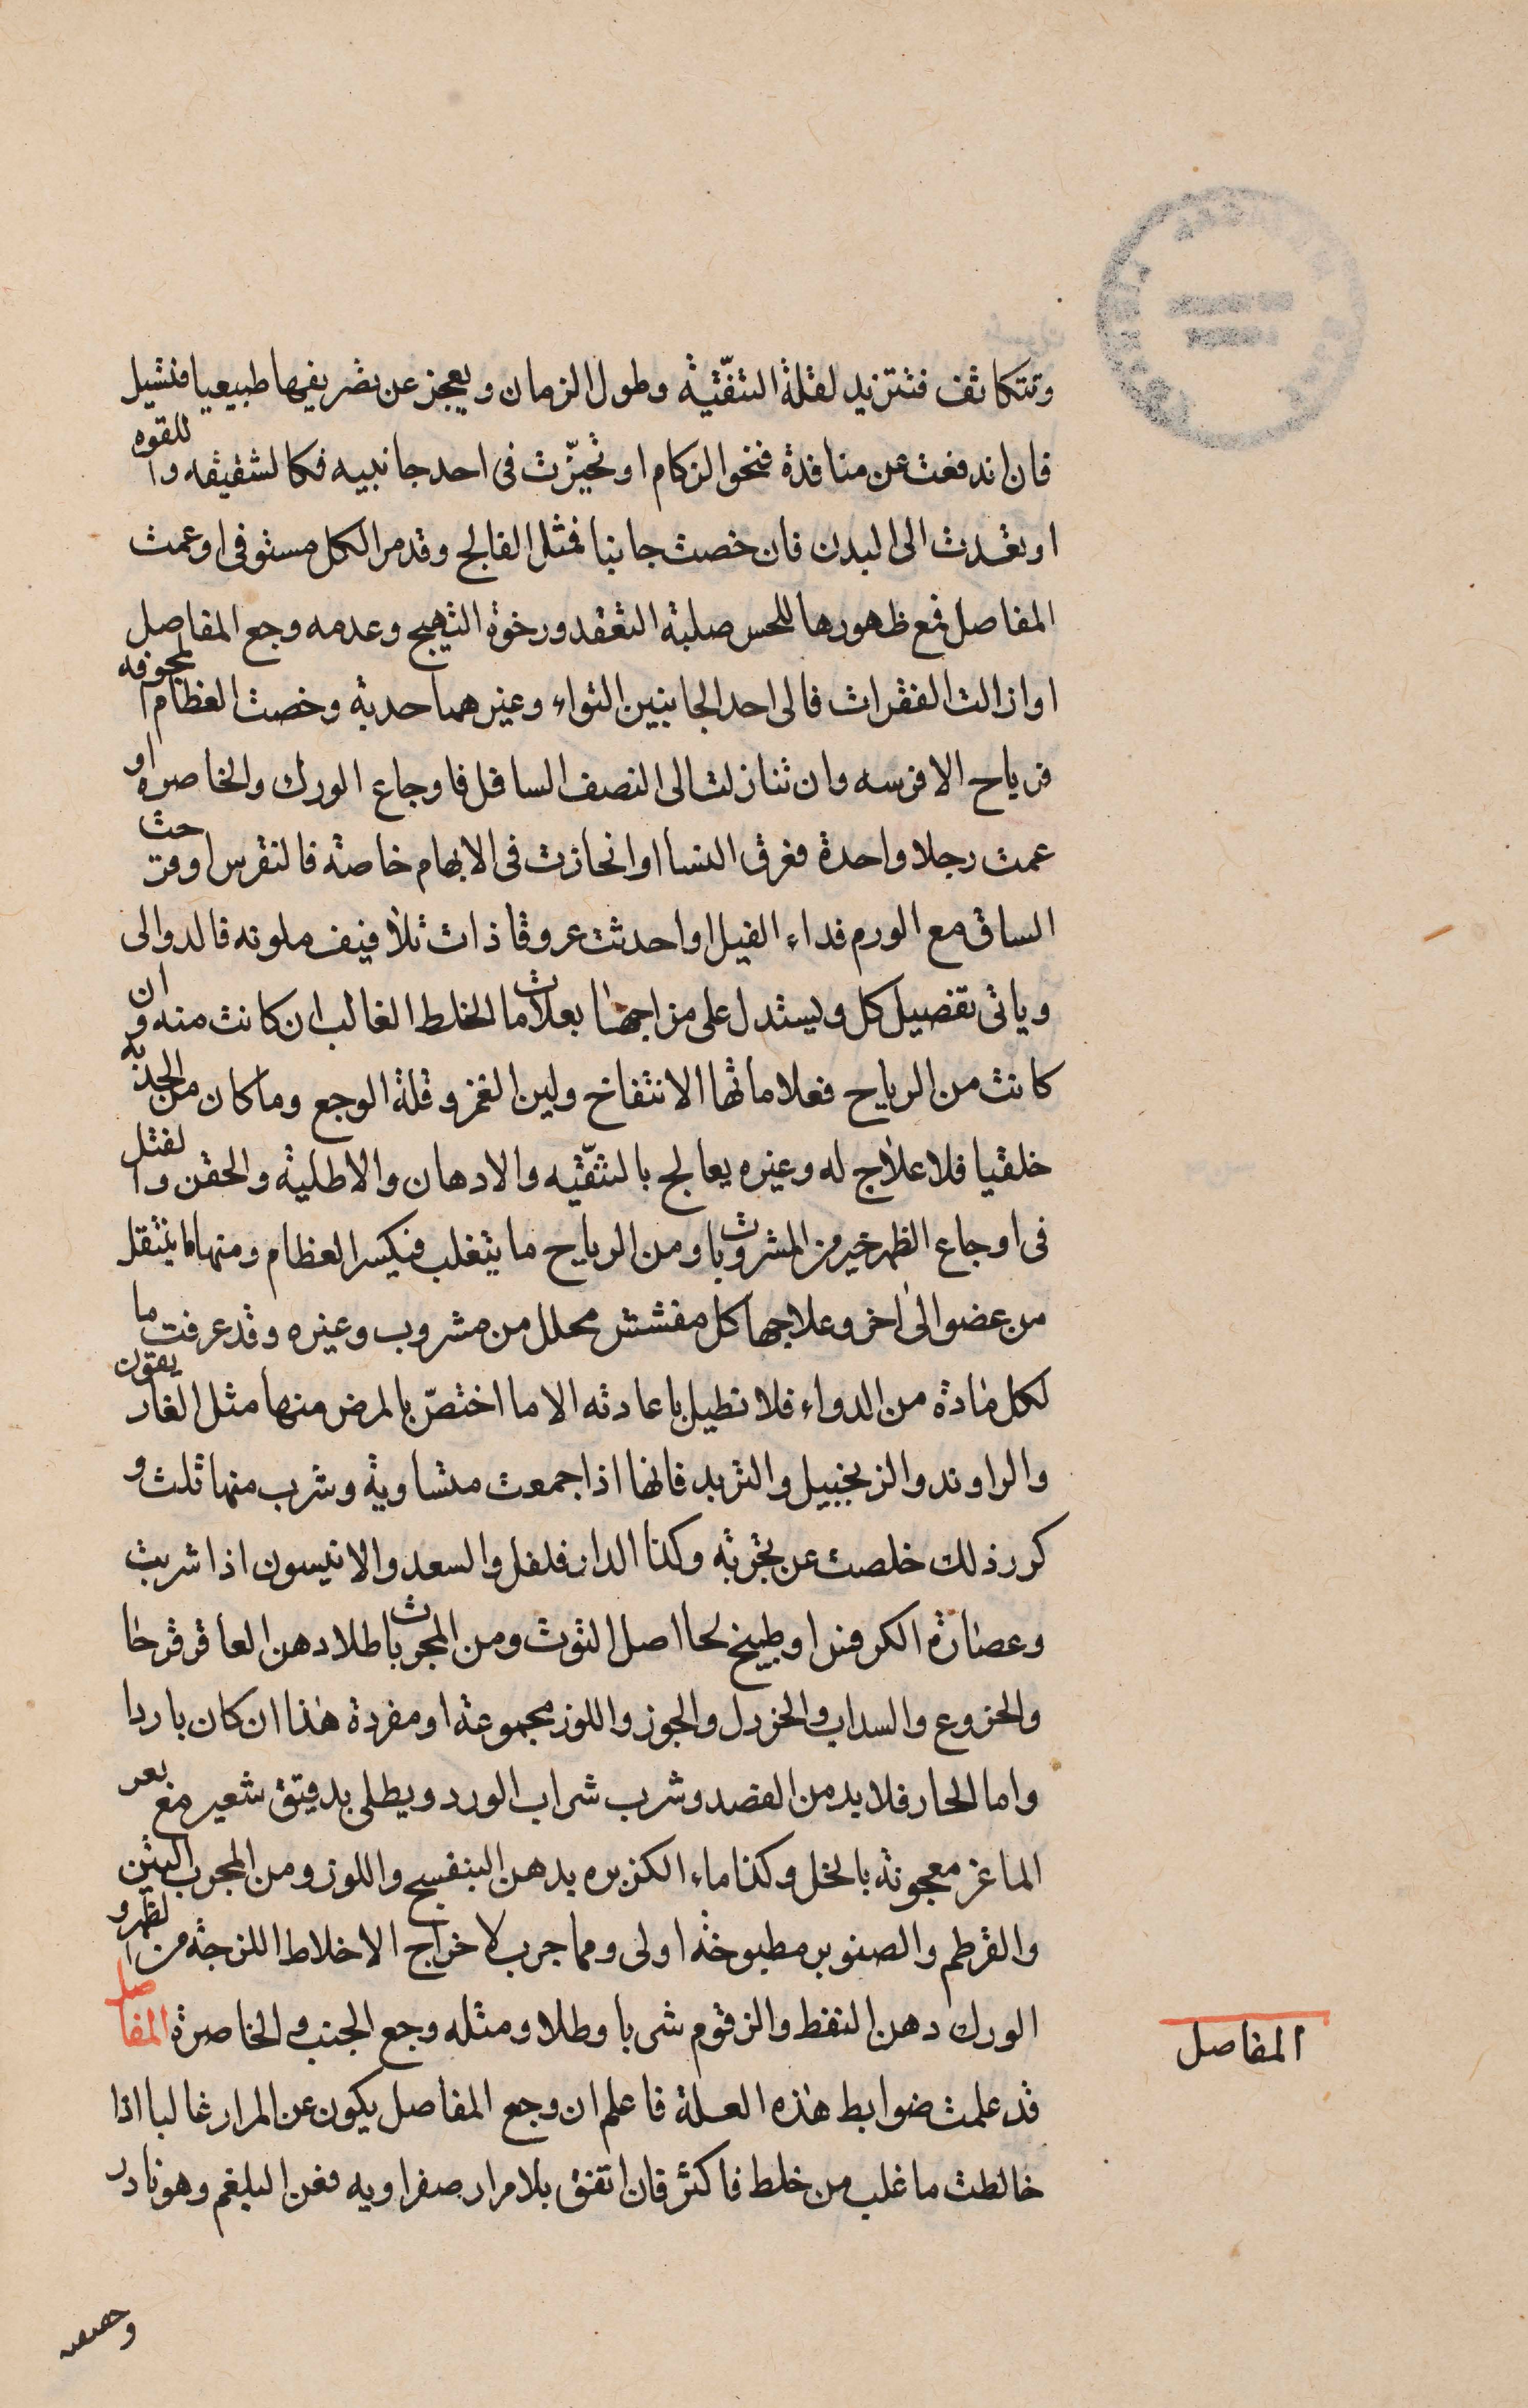 وتتكاثف فتتزيد لقلة التنقية وطول الزمان ويعجز عن تصريفها طبيعيا فتسيل
فان اندفعت عن منافذة فنحوالزكام او تحيّزت فى احد جانبيه فكالشقيقه واللقوه
او تعدت الى البدن فان خصت جانبا فمثل الفالج وقد مر الكل مستوفى او عمت
المفاصل فمع ظهورها للحس صلبة التعقد ورخوة التهيج وعدمه وجع المفاصل
او ازالت الفقرات فالى احد الجانبين التواء وغيرهما حدبة وخصت العظام المجوفه
فرياح الافرسه وان تنازلت الى النصف السافل فاوجاع الورك والخاصره او
عمت رجلا واحدة فعرق النسا او انحازت فى الابهام خاصة فالنقرس او قرحت
الساق مع الورم فداء الفيل او احدثت عروقا ذات تلافيف ملونه فالدوالى
وياتى تفصيل كل ويستدل على مزاجها بعلامات الخلط الغالب ان كانت منه وان
كانت من الرياح فعلاماتها الانتفاخ ولين الغمز وقلة الوجع وما كان من الحدبه
خلقيا فلا علاج له وغيره يعالج بالتنقيه والادهان والاطلية والحقن والفتل
فى اوجاع الظهر خير من المشروبات ومن الرياح ما يتغلب فيكسر العظام ومنها ما ينتقل
من عضو الى اخر وعلاجها كل مفشش محلل من مشروب وغيره وقد عرفت ما
لكل مادة من الدواء فلا نطيل باعادته الا ما اختصّ بالمرض منها مثل الغاريقون
والراوند والزنجبيل والتربد فانها اذا جمعت متساوية وشرب منها ثلث و
كرر ذلك خلصت عن تجربة وكذا الدارفلفل والسعد والانيسون اذا شربت
وعصارة الكرفس او طبيخ لحا اصل التوت ومن المجربات طلا دهن العاقرقرحا
والخروع والسداب والخردل والجوز واللوز مجموعة او مفردة هذا ان كان باردا
واما الحار فلا بد من الفصد وشرب شراب الورد ويطلى بدقيق شعير مع بعر
الماعز معجونة بالخل وكذا ماء الكزبره بدهن البنفسج واللوز ومن المجرب التين
والقرطم والصنوبر مطبوخة اولى ومما جرب لاخراج الاخلاط اللزجة من الظهر و
الورك دهن النفط والزقوم شربا وطلا ومثله وجع الجنب والخاصرة المفاصل
المفاصل
قد علمت ضوابط هذه العلة فاعلم ان وجع المفاصل يكون عن المرار غالبا اذا
خالطت ما غلب من خلط فاكثر فان اتفق بلا مرار صفراويه فعن البلغم وهو نادر